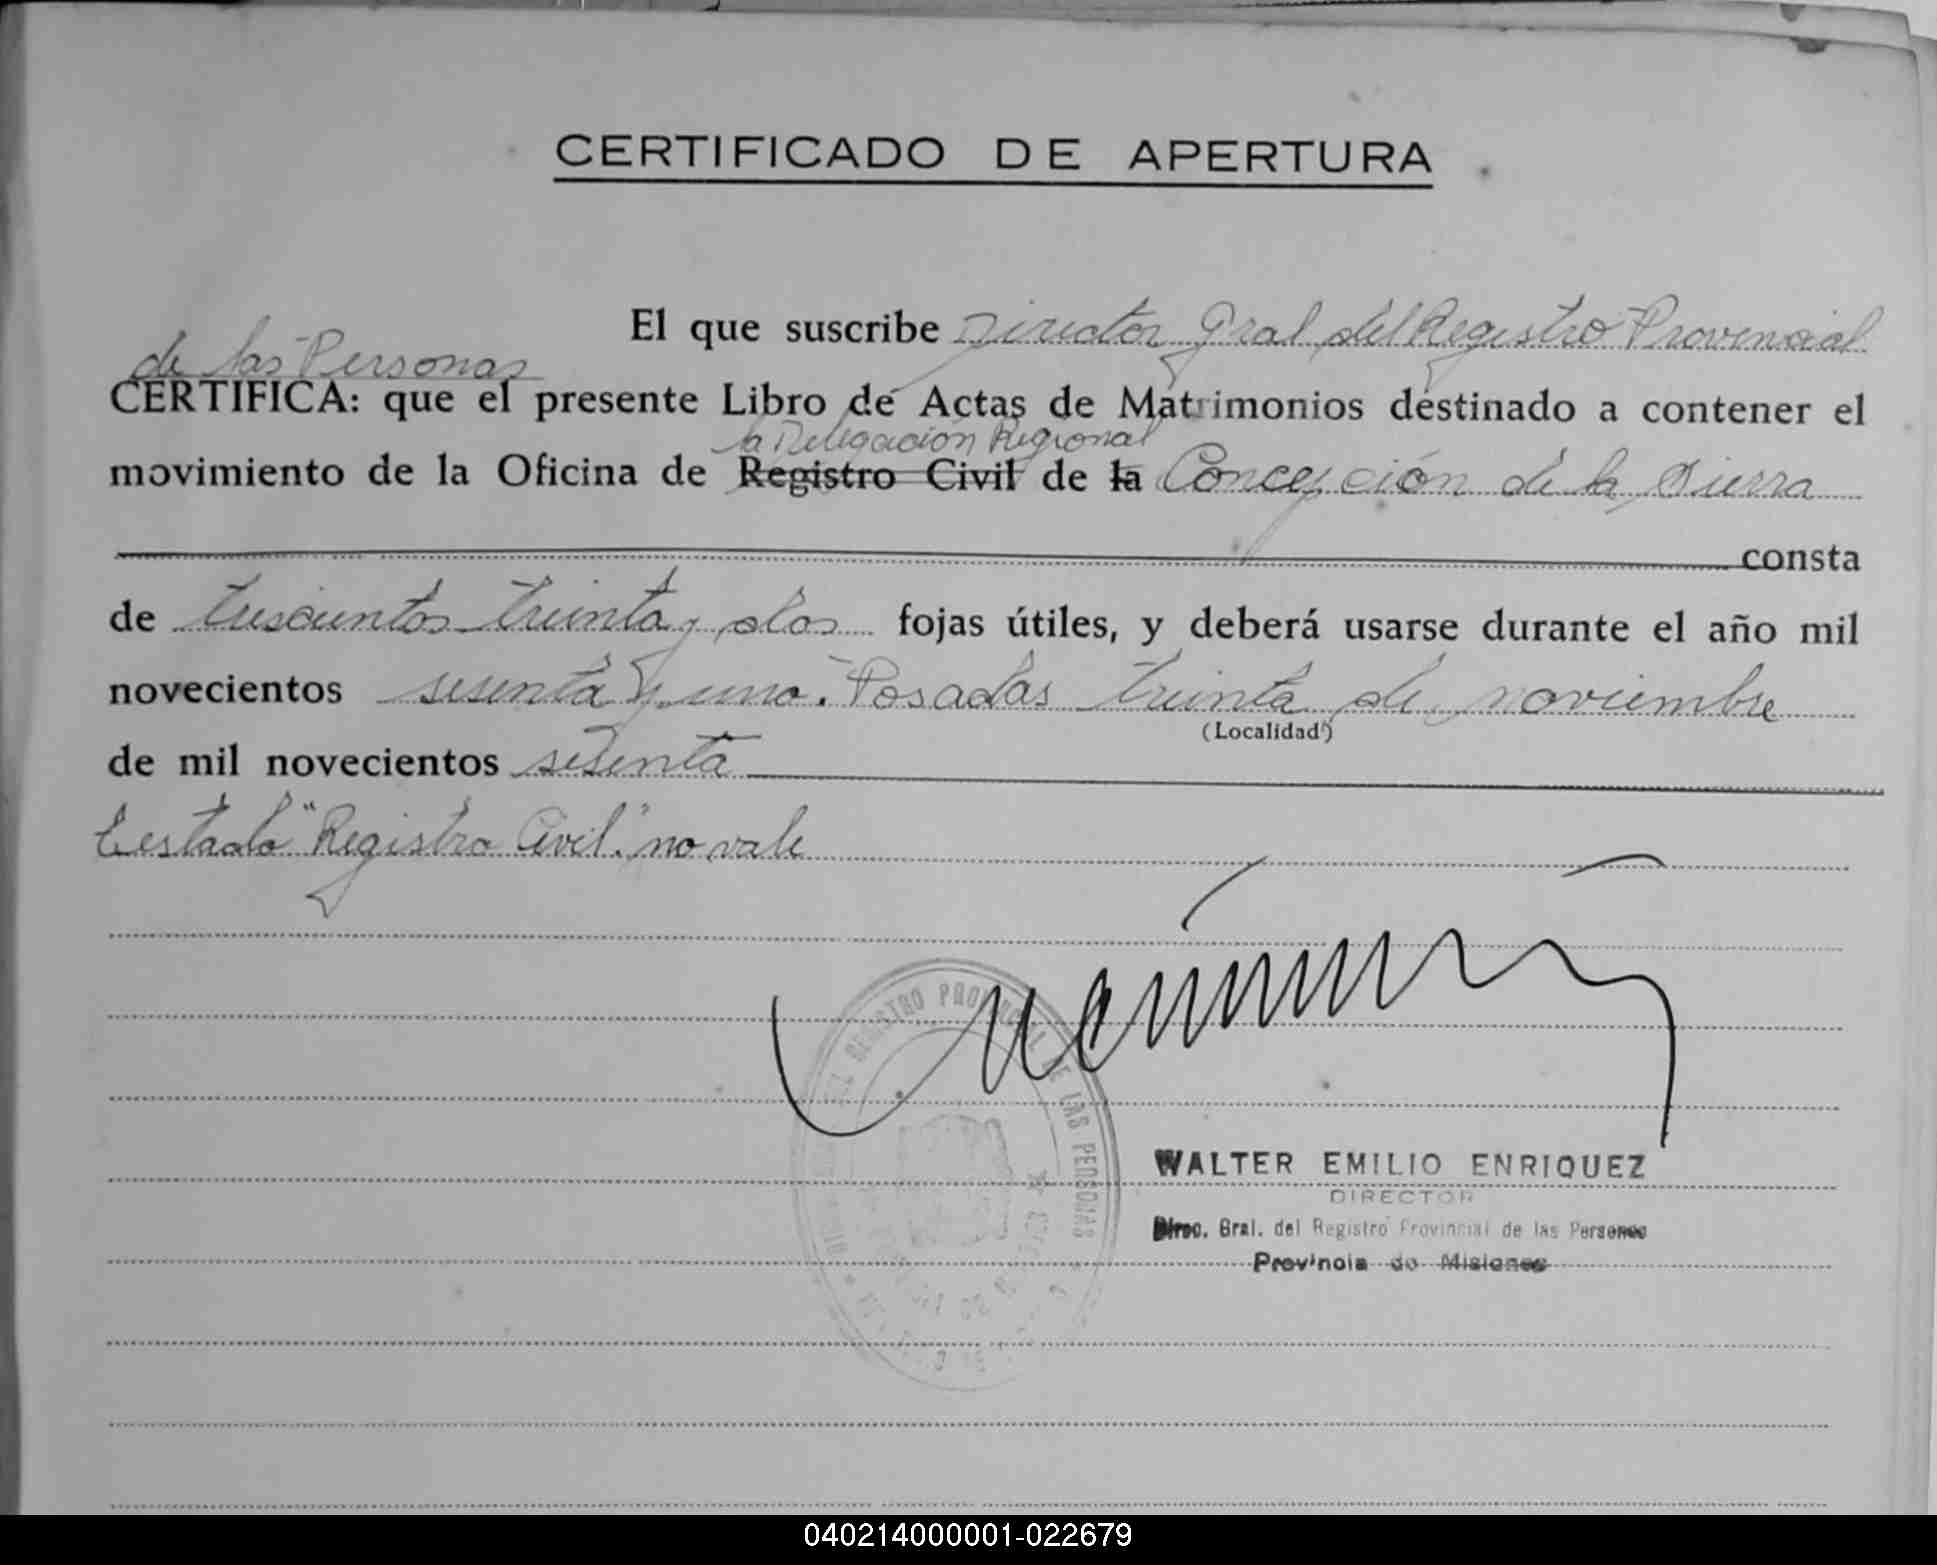 CERTIFICADO DE APERTURA
El que suscribe Director Gral del Registro Provincial
de las Personas
CERTIFICA: que el presente Libro de Actas de Matrimonios destinado a contener el
la Delegación Regional
movimiento de la Oficina de Registro Civil de la Concepción de la Sierra
consta
de trescientos treinta y dos fojas útiles, y deberá usarse durante el año mil
novecientos sesenta y uno. Posadas treinta de noviembre
(Localidad)
de mil novecientos sesenta
Testado "Registro Civil" no vale
REGISTRO PROVINCIAL DE LAS PERSONAS
WALTER EMILIO ENRIQUEZ
DIRECTOR
Direc. Gral. del Registro Provincial de las Personas
Provincia de Misiones
040214000001-022679